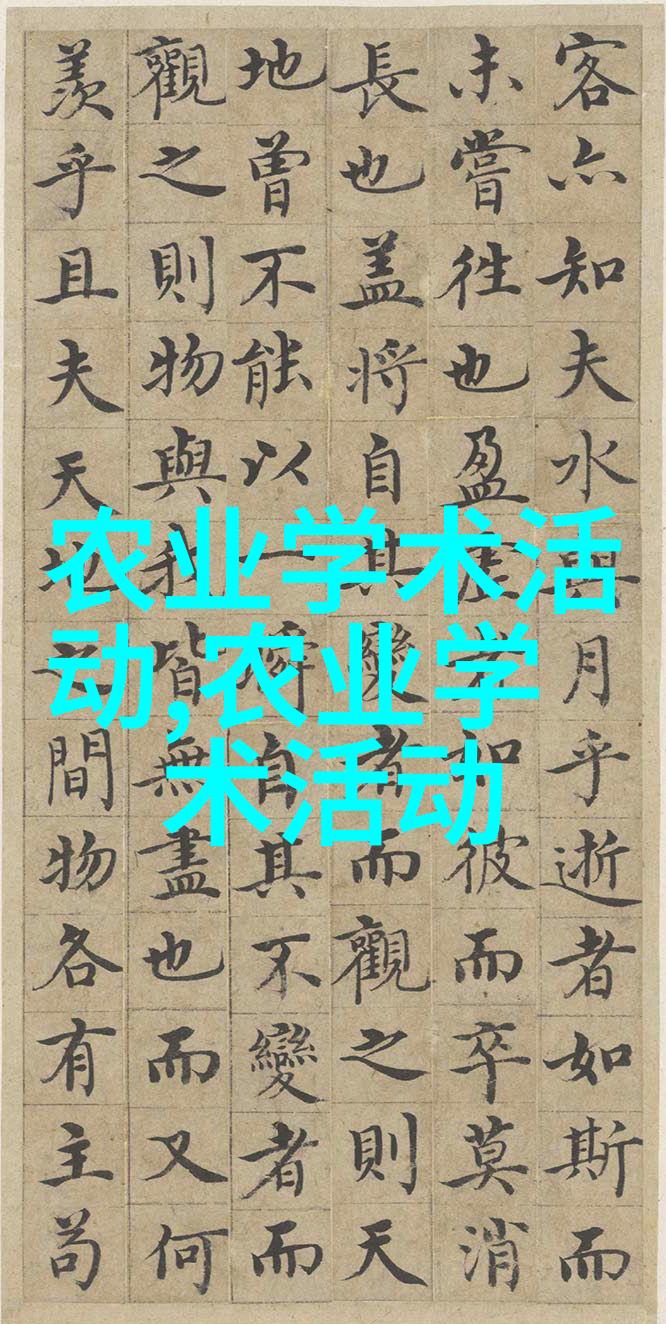 客亦知夫水與月乎逝者如斯而
未嘗往也盈虛者如彼而卒莫消
長也盖將自其變者而觀之則天
地曾不能以一瞬自其不變者而
觀之則物與我皆無盡也而又何
羨乎且夫天地之間物各有主苟
农业学术活
动,农业学
术活动